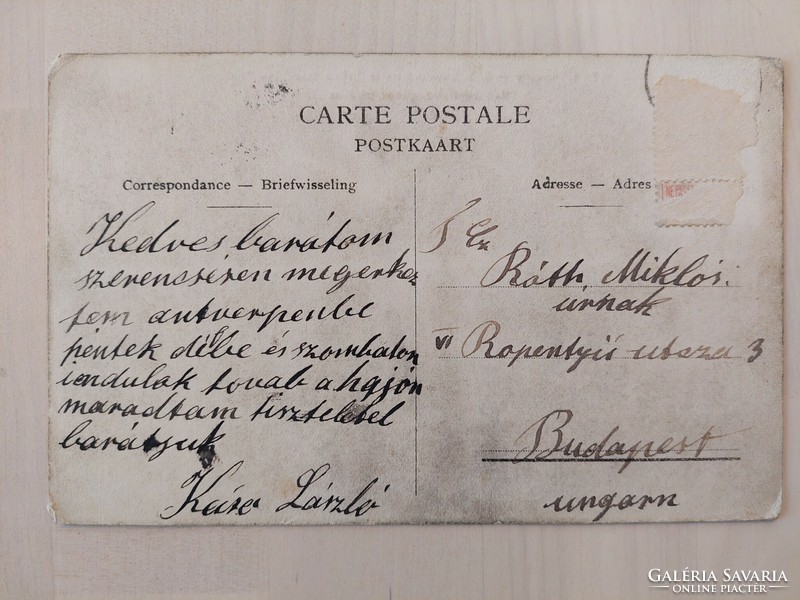 CARTE POSTALE
POSTKAART
Correspondance — Briefwisseling
Kedves barátom
szerencsésen megerkez
tem antverpenbe
péntek délbe és szombaton
indulok tovab a hajón
maradtam tisztelettel
barátjuk
László
Adresse — Adres
Róth Miklós
urnak
VI Ropentyű utsza 3
Budapest
ungarn
GALÉRIA SAVARIA
ONLINE PIACTÉR